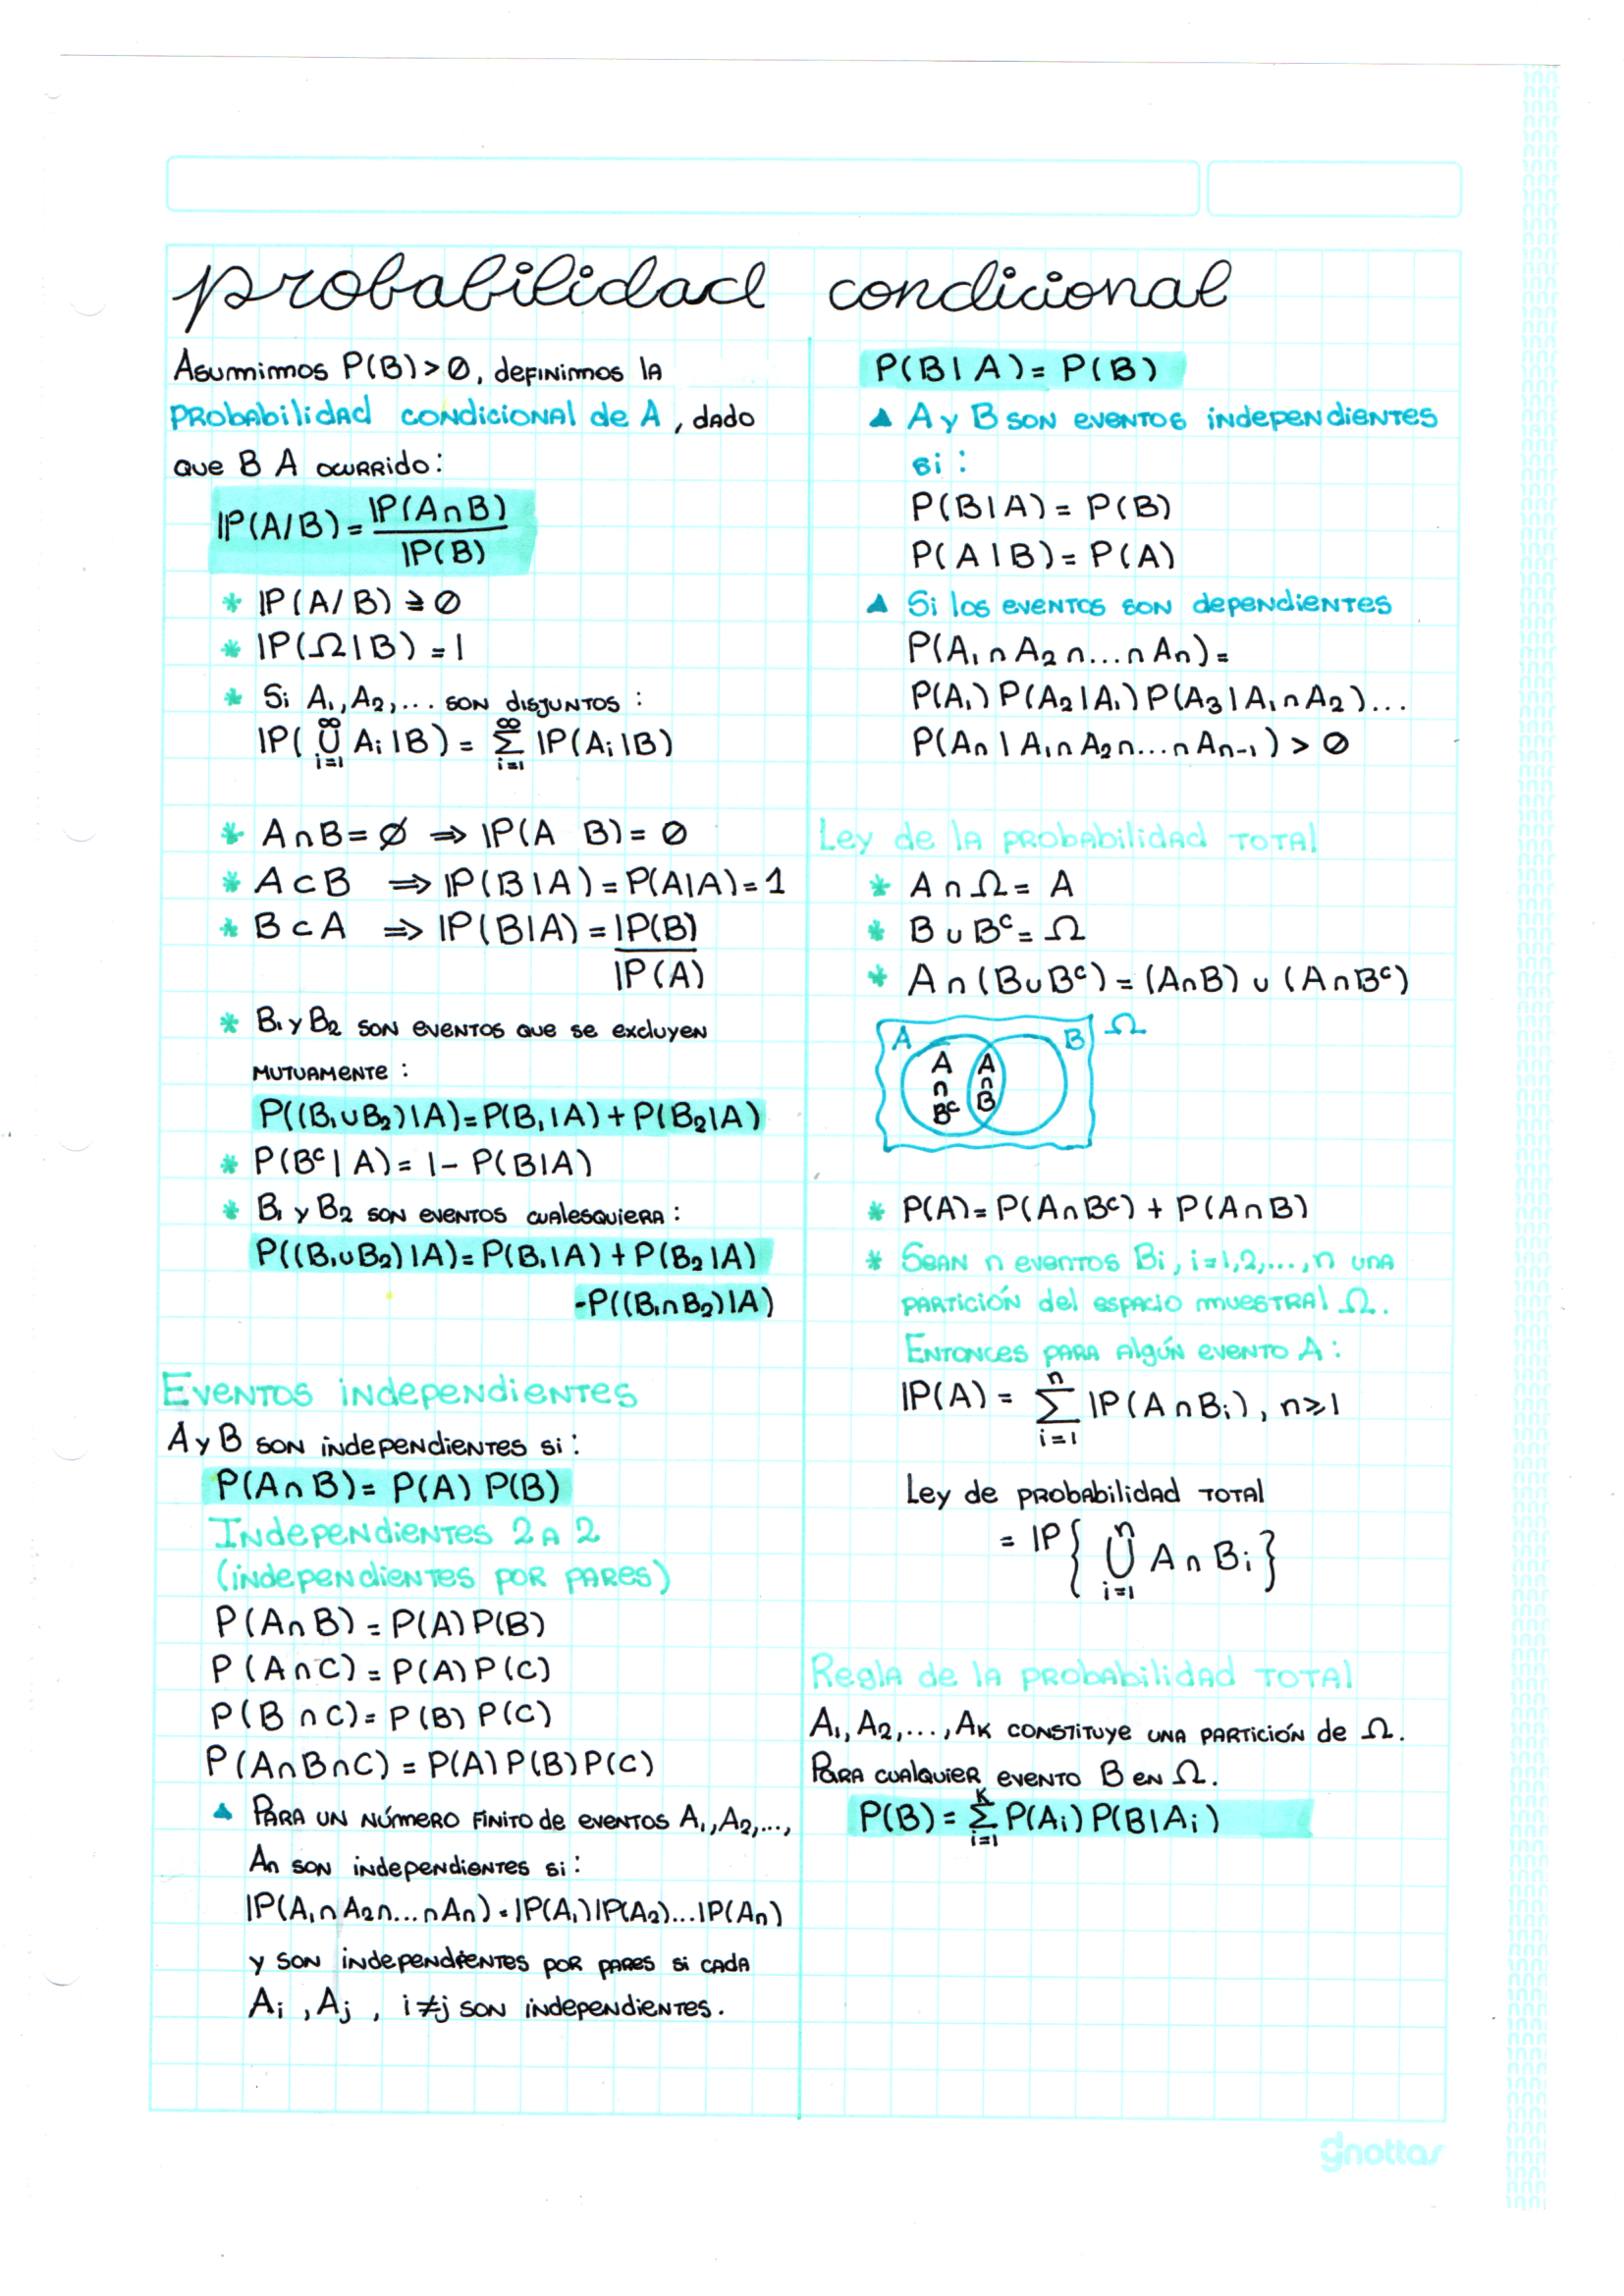 probabilidad condicional
Asumimos P(B) > 0, definimos la
probabilidad condicional de A, dado
que B A ocurrido:
IP(A/B) = IP(A∩B)
IP(B)
* IP(A/B) ≥ 0
* IP(Ω|B) = 1
* Si A₁, A₂, ... son disjuntos:
IP(∞∪i=1 Ai|B) = ∞Σi=1 IP(Ai|B)
* A∩B = ∅ ⇒ IP(A B) = 0
* A⊂B ⇒ IP(B|A) = P(A|A) = 1
* B⊂A ⇒ IP(B|A) = IP(B)
IP(A)
* B₁ y B₂ son eventos que se excluyen
mutuamente:
P((B₁∪B₂)|A) = P(B₁|A) + P(B₂|A)
* P(Bᶜ|A) = 1 - P(B|A)
* B₁ y B₂ son eventos cualesquiera:
P((B₁∪B₂)|A) = P(B₁|A) + P(B₂|A)
-P((B₁∩B₂)|A)
Eventos independientes
A y B son independientes si:
P(A∩B) = P(A) P(B)
Independientes 2 a 2
(independientes por pares)
P(A∩B) = P(A)P(B)
P(A∩C) = P(A)P(C)
P(B∩C) = P(B) P(C)
P(A∩B∩C) = P(A)P(B)P(C)
▲ Para un número finito de eventos A₁, A₂, ...,
An son independientes si:
IP(A₁∩A₂∩...∩An) = IP(A₁)IP(A₂)...IP(An)
y son independientes por pares si cada
Ai, Aj, i≠j son independientes.
P(B|A) = P(B)
▲ A y B son eventos independientes
si:
P(B|A) = P(B)
P(A|B) = P(A)
▲ Si los eventos son dependientes
P(A₁∩A₂∩...∩An) =
P(A₁)P(A₂|A₁)P(A₃|A₁∩A₂)...
P(An|A₁∩A₂∩...∩An-₁) > 0
Ley de la probabilidad total
* A∩Ω = A
* B∪Bᶜ = Ω
* A∩(B∪Bᶜ) = (A∩B)∪(A∩Bᶜ)
A B Ω
A A
∩ ∩
Bᶜ B
* P(A) = P(A∩Bᶜ) + P(A∩B)
* Sean n eventos Bi, i=1,2,...,n una
partición del espacio muestral Ω.
Entonces para algún evento A:
IP(A) = nΣi=1 IP(A∩Bi), n≥1
Ley de probabilidad total
= IP{n∪i=1 A∩Bi}
Regla de la probabilidad total
A₁, A₂, ..., AK constituye una partición de Ω.
Para cualquier evento B en Ω.
P(B) = KΣi=1 P(Ai)P(B|Ai)
gnottas